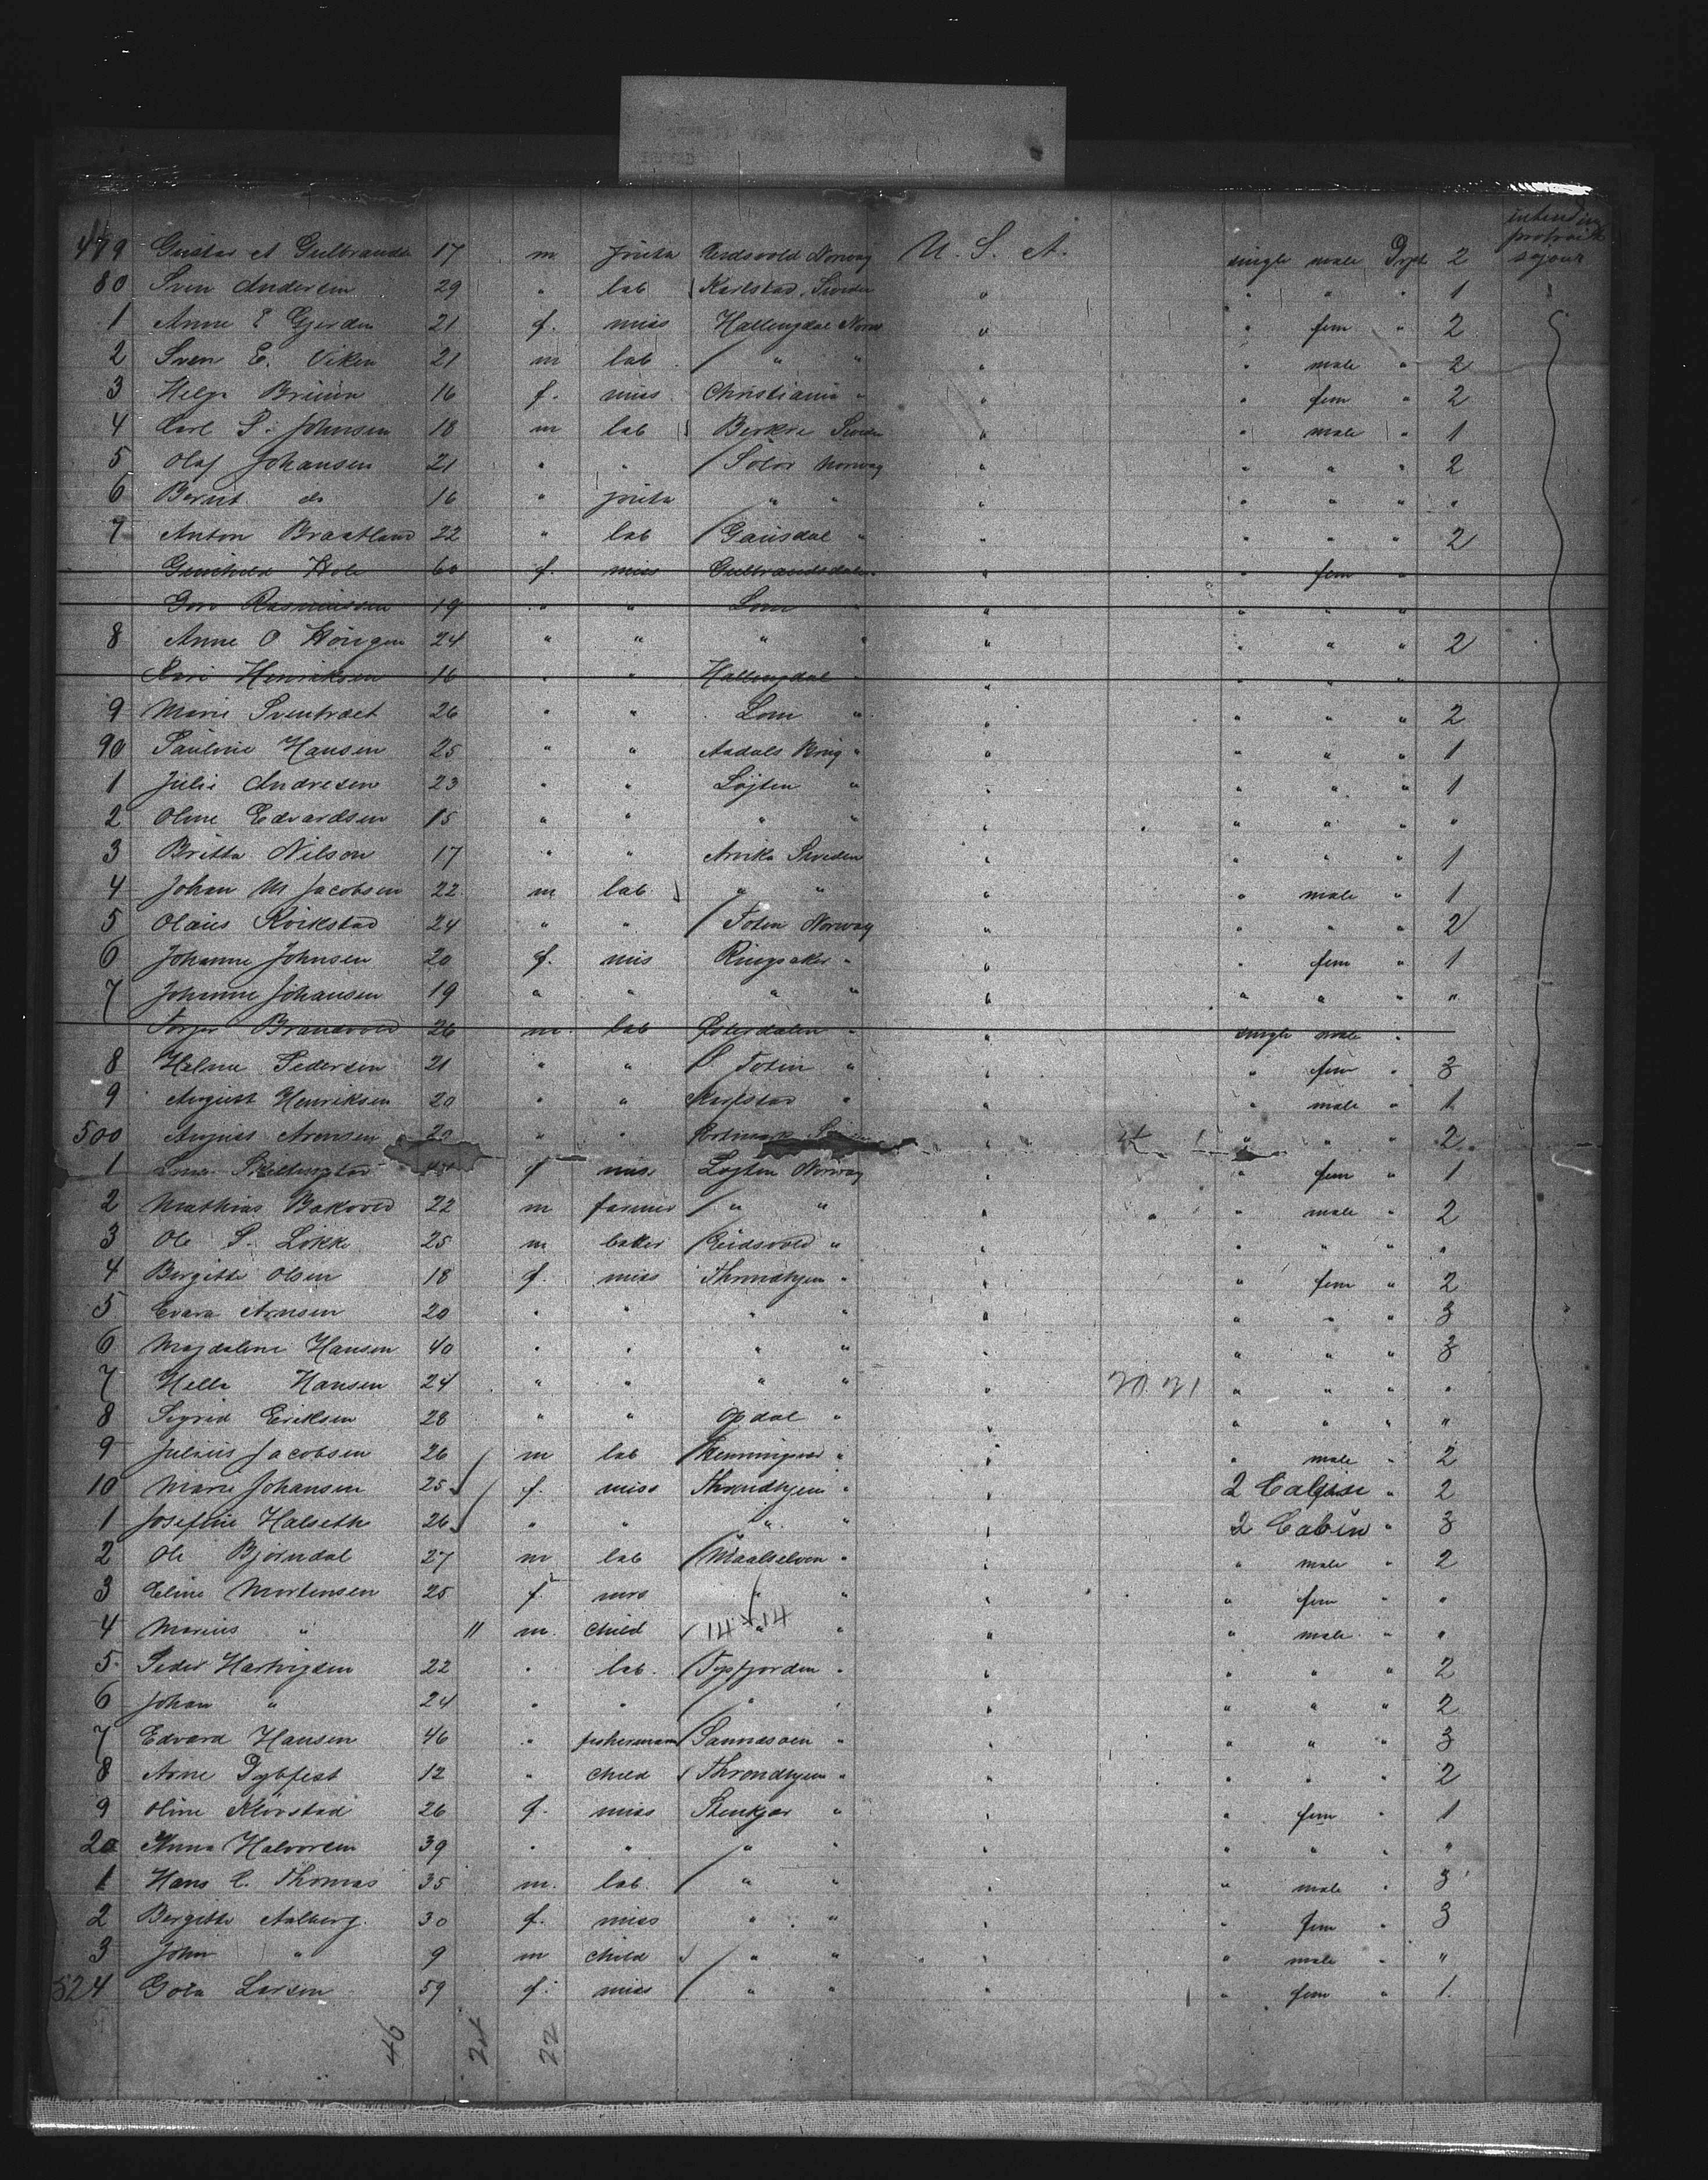 intending
protract
sejour
479 Gustav A Gulbrands 17 m Eidsvold Norway U. S. A. single male 2
80 Sven Andersen 29 " lab Karlstad Sweden " " " " 1
1 Anne E Gjerden 21 f. miss Hallingdal Norw " " fem " 2
2 Sven E. Viken 21 m lab " " " " male " 2
3 Helga Bruun 16 f. miss Christiania " " " fem " 2
4 Carl P. Johnsen 18 m lab Sweden " " male " 1
5 Olaf Johansen 21 " " Solör Norway " " " " 2
6 Bernt do 16 " " " " " " " "
7 Anton Braatland 22 " lab Gausdal " " " " " 2
Gunhild Hole 60 f. miss Gulbrandsdalen " " fem "
Goro Rasmussen 19 " " Lom " " " " "
8 Anne O 24 " " " " " " " " 2
Kari Henriksen 16 " " Hallingdal " " " " "
9 Marie 26 " " Lom " " " " " 2
90 Pauline Hansen 25 " " Aadals Brug " " " " " 1
1 Julie Andresen 23 " " Löjten " " " " " 1
2 Oline Edvardsen 15 " " " " " " " " "
3 Britta Nilson 17 " " Arvika Sweden " " " " 1
4 Johan M Jacobsen 22 m lab " " " " male " 1
5 Olaus Kvikstad 24 " " Toten Norway " " " " 2
6 Johanne Johnsen 20 f. mis Ringsaker " " " fem " 1
7 Johanne Johansen 19 " " " " " " " " "
26 m. lab " " single male "
8 Helene Pedersen 21 " " Toten " " " fem " 3
9 August Henriksen 20 " " Karlstad " " " male " 1
500 August Arensen 20 " " " " " " 2
1 f miss Löjten Norway " " fem " 1
2 Mathias Bakvold 22 m farmer " " " " male " 2
3 Ole P. Lökke 25 m baker Eidsvold " " " " " "
4 Bergitte Olsen 18 f. miss Throndhjem " " " fem " 2
5 Arnsen 20 " " " " " " " " 3
6 Magdalene Hansen 40 " " " " " " " " 3
7 Hella Hansen 24 " " " " " 20 21 " " " "
8 Sigrid Eriksen 28 " " Opdal " " " " " "
9 Julius Jacobsen 26 m lab Henningsvær " " " male " 2
10 Marie Johansen 25 f. miss Throndhjem " " 2 Cabin " 2
1 Josefine Halseth 26 " " " " " 2 Cabin " 3
2 Ole Bjørndal 27 m lab Maalselven " " " male " 2
3 Eline Mortensen 25 f mrs " " " " fem " "
4 Marius " 11 m. child 14 x 14 " " " " male " "
5 Peder Hartvigsen 22 " lab. " " " " " 2
6 Johan " 24 " " " " " " " " 2
7 Edvard Hansen 46 " fisherman " " " " " 3
8 Arne Dybfest 12 " child Throndhjem " " " " " 2
9 Oline 26 f. miss Stenkjær " " " fem " 1
20 Anna Halvorsen 39 " " " " " " " " "
1 Hans E. Thomas 35 m. lab. " " " " male " 3
2 Bergitte Aalberg 30 f. miss " " " " fem " 3
3 John " 9 m child " " " " male " "
524 Larsen 59 f. miss " " " " fem " 1.
46 24 22